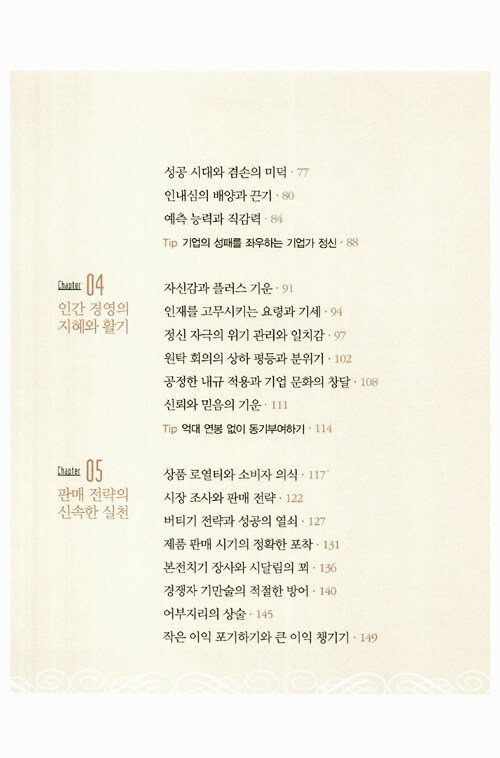 성공 시대와 겸손의 미덕 · 77
인내심의 배양과 끈기 · 80
예측 능력과 직감력 · 84
Tip 기업의 성패를 좌우하는 기업가 정신 · 88
Chapter 04
인간 경영의
지혜와 활기
자신감과 플러스 기운 · 91
인재를 고무시키는 요령과 기세 · 94
정신 자극의 위기 관리와 일치감 · 97
원탁 회의의 상하 평등과 분위기 · 102
공정한 내규 적용과 기업 문화의 창달 · 108
신뢰와 믿음의 기운 · 111
Tip 억대 연봉 없이 동기부여하기 · 114
Chapter 05
판매 전략의
신속한 실천
상품 로열티와 소비자 의식 · 117
시장 조사와 판매 전략 · 122
버티기 전략과 성공의 열쇠 · 127
제품 판매 시기의 정확한 포착 · 131
본전치기 장사와 시달림의 꾀 · 136
경쟁자 기만술의 적절한 방어 · 140
어부지리의 상술 · 145
작은 이익 포기하기와 큰 이익 챙기기 · 149